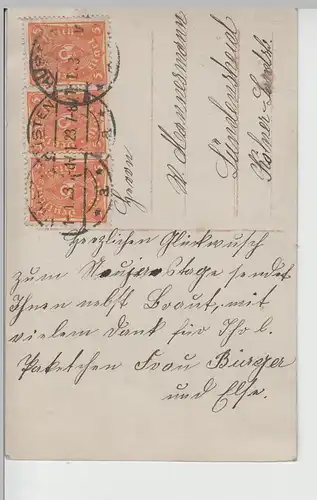 Herrn
W. Mannesmann
Lüdenscheid
Kölner-Landstr.
Herzlichen Glückwusch
zum Neujarstage sendet
Ihnen nebst Braut, mit
vielem Dank für Ihr l.
Paketchen Frau Bürger
und Else.